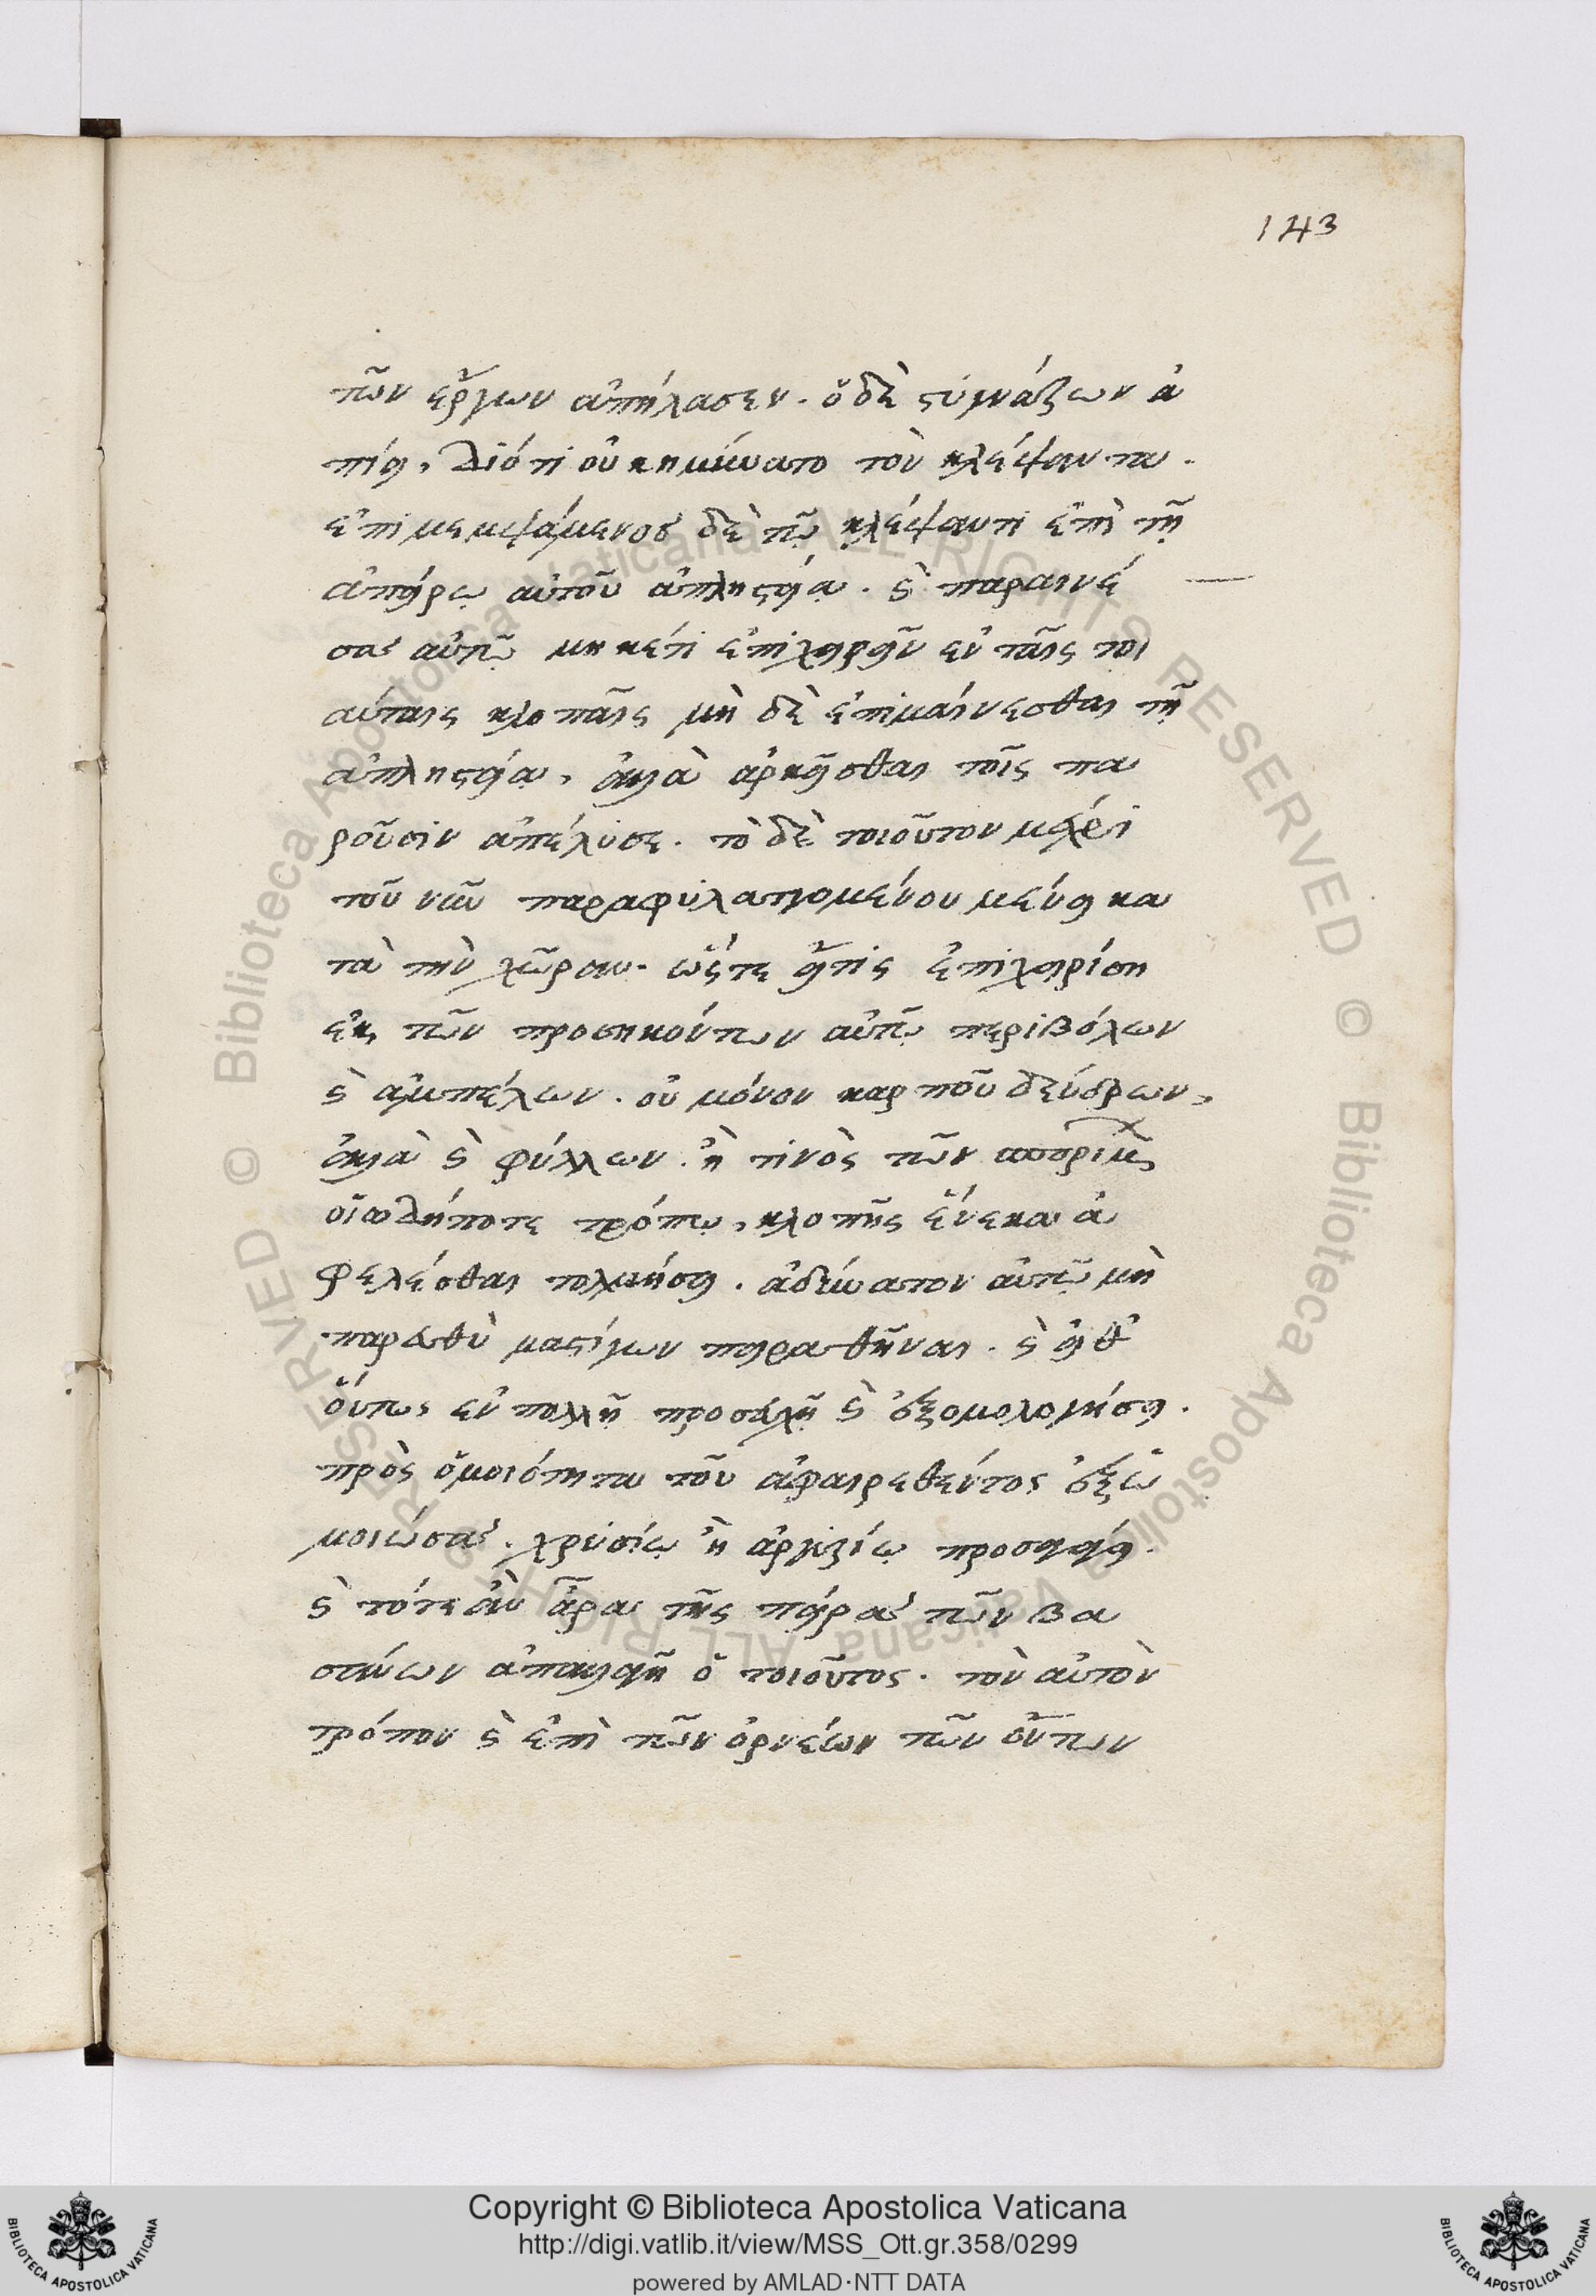 143
τῶν ἔργων ἀπήλασεν. ὁ δὲ στυγνάζων ἀ
πίει, διότι οὐκ ημύνατο τὸν κλέψαντα.
ἐπιμεμψάμενος δὲ τῷ κλέψαντι ἐπὶ τῇ
ἀπείρῳ αὐτοῦ ἀπληστεία. ϛ̀ παραινέ
σας αὐτῷ μηκέτι ἐπιχειρεῖν ἐν ταῖς τοι
αύταις κλοπαῖς μὴ δὲ ἐπιμαίνεσθαι τῇ
ἀπληστείᾳ, ἀλλὰ ἀρκεῖσθαι τοῖς πα
ροῦσιν ἀπέλυσε. τὸ δὲ τοιοῦτον μέχρι
τοῦ νῦν παραφυλαττομένου μένει κα
τὰ τὴν χῶραν. ὥστε εἴτις ἐπιχειρίση
ἐκ τῶν προσηκόντων αὐτῷ περιβόλων
ϛ̀ ἀμπέλων. οὐ μόνον καρποῦ δένδρων,
ἀλλὰ ϛ̀ φύλλων. ἢ τινὸς τῶν
οἱωδήποτε τρόπῳ, κλοπῆς ἕνεκα ἀ
φελέσθαι τολμήσει. ἀδύνατον αὐτῷ μὴ
παραυθὺ μαστίγων πειραθῆναι. ϛ̀ εἰθ'
ὅυτως ἐν πολλῇ προσοχῇ ϛ̀ ἐξομολογήσει.
πρὸς ὁμοιότητα τοῦ ἀφαιρεθέντος ἐξω
μοιώσας. χρυσίῳ ἢ ἀργυρίῳ προσαγάγει.
ϛ̀ τότε ἂν ἆρα τῆς πείρας τῶν βα
σάνων ἀπαλλαγῆ ὁ τοιοῦτος. τὸν αὐτὸν
τρόπον ϛ̀ ἐπὶ τῶν ὀρνέων τῶν ὄντων
Copyright © Biblioteca Apostolica Vaticana
http://digi.vatlib.it/view/MSS_Ott.gr.358/0299
powered by AMLAD·NTT DATA